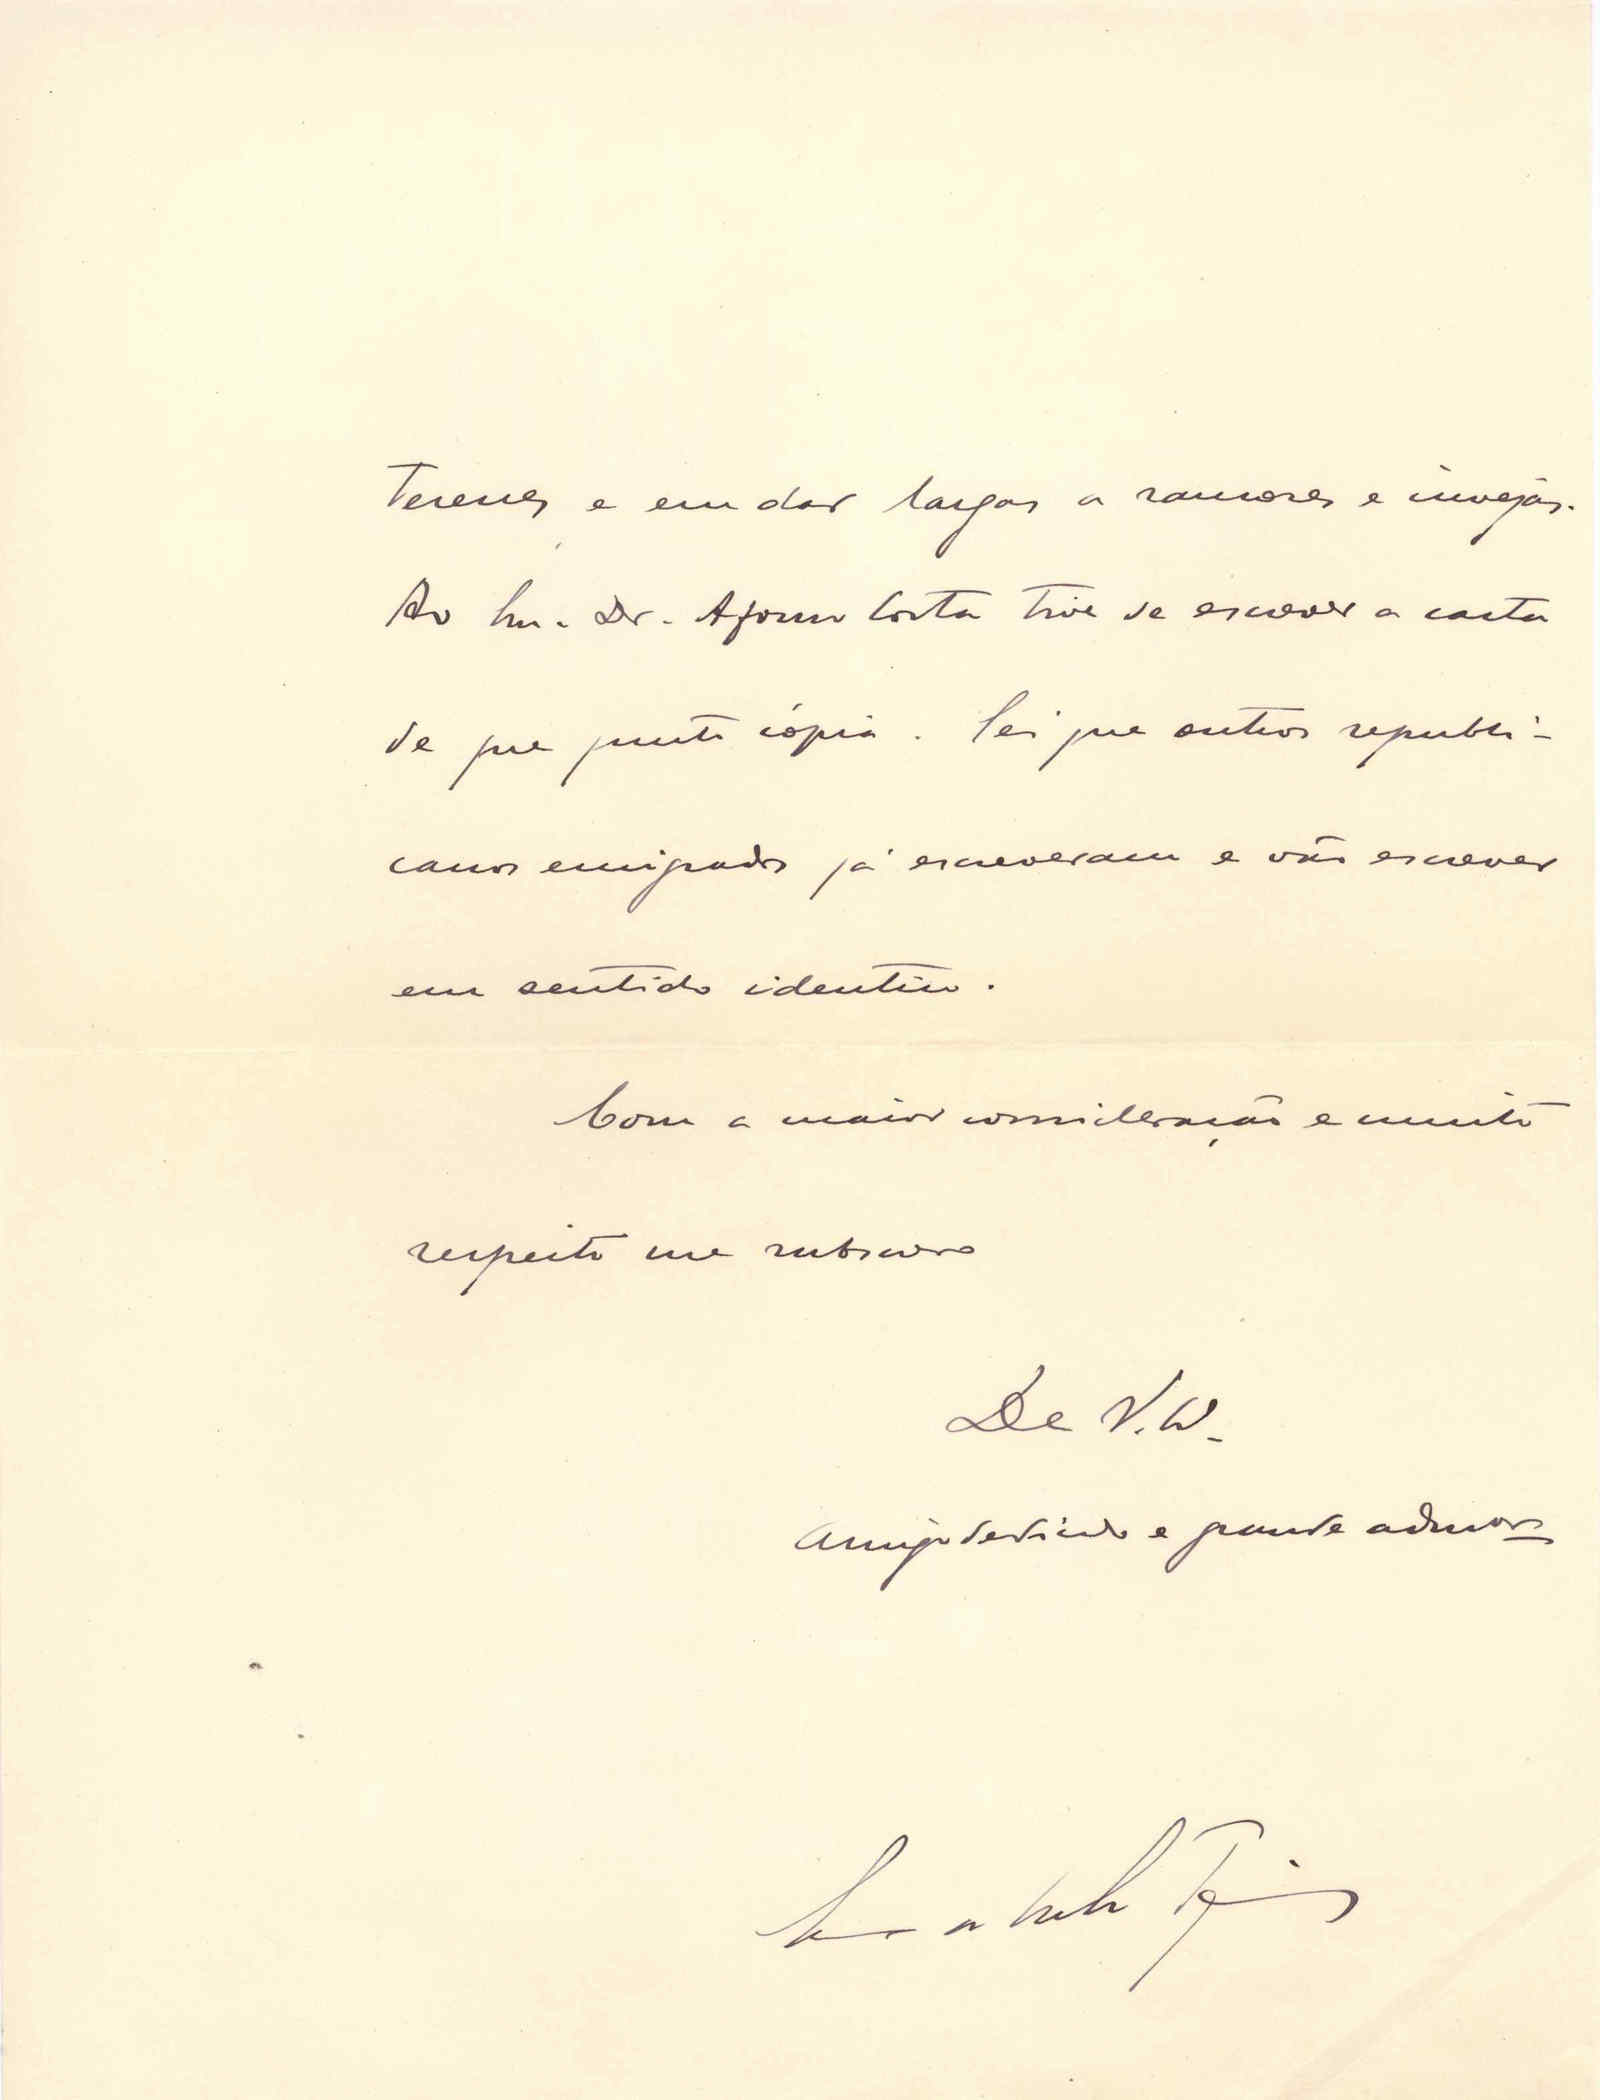 teresses e em dar largas a rancores e invejas.
Ao Snr. Dr. Afonso Costa tive de escrever a carta
de que junto cópia. Sei que outros republi-
canos emigrados já escreveram e vão escrever
em sentido identico.
Com a maior consideração e muito
respeito me subscrevo
De V.
amigo dedicado e grande admor